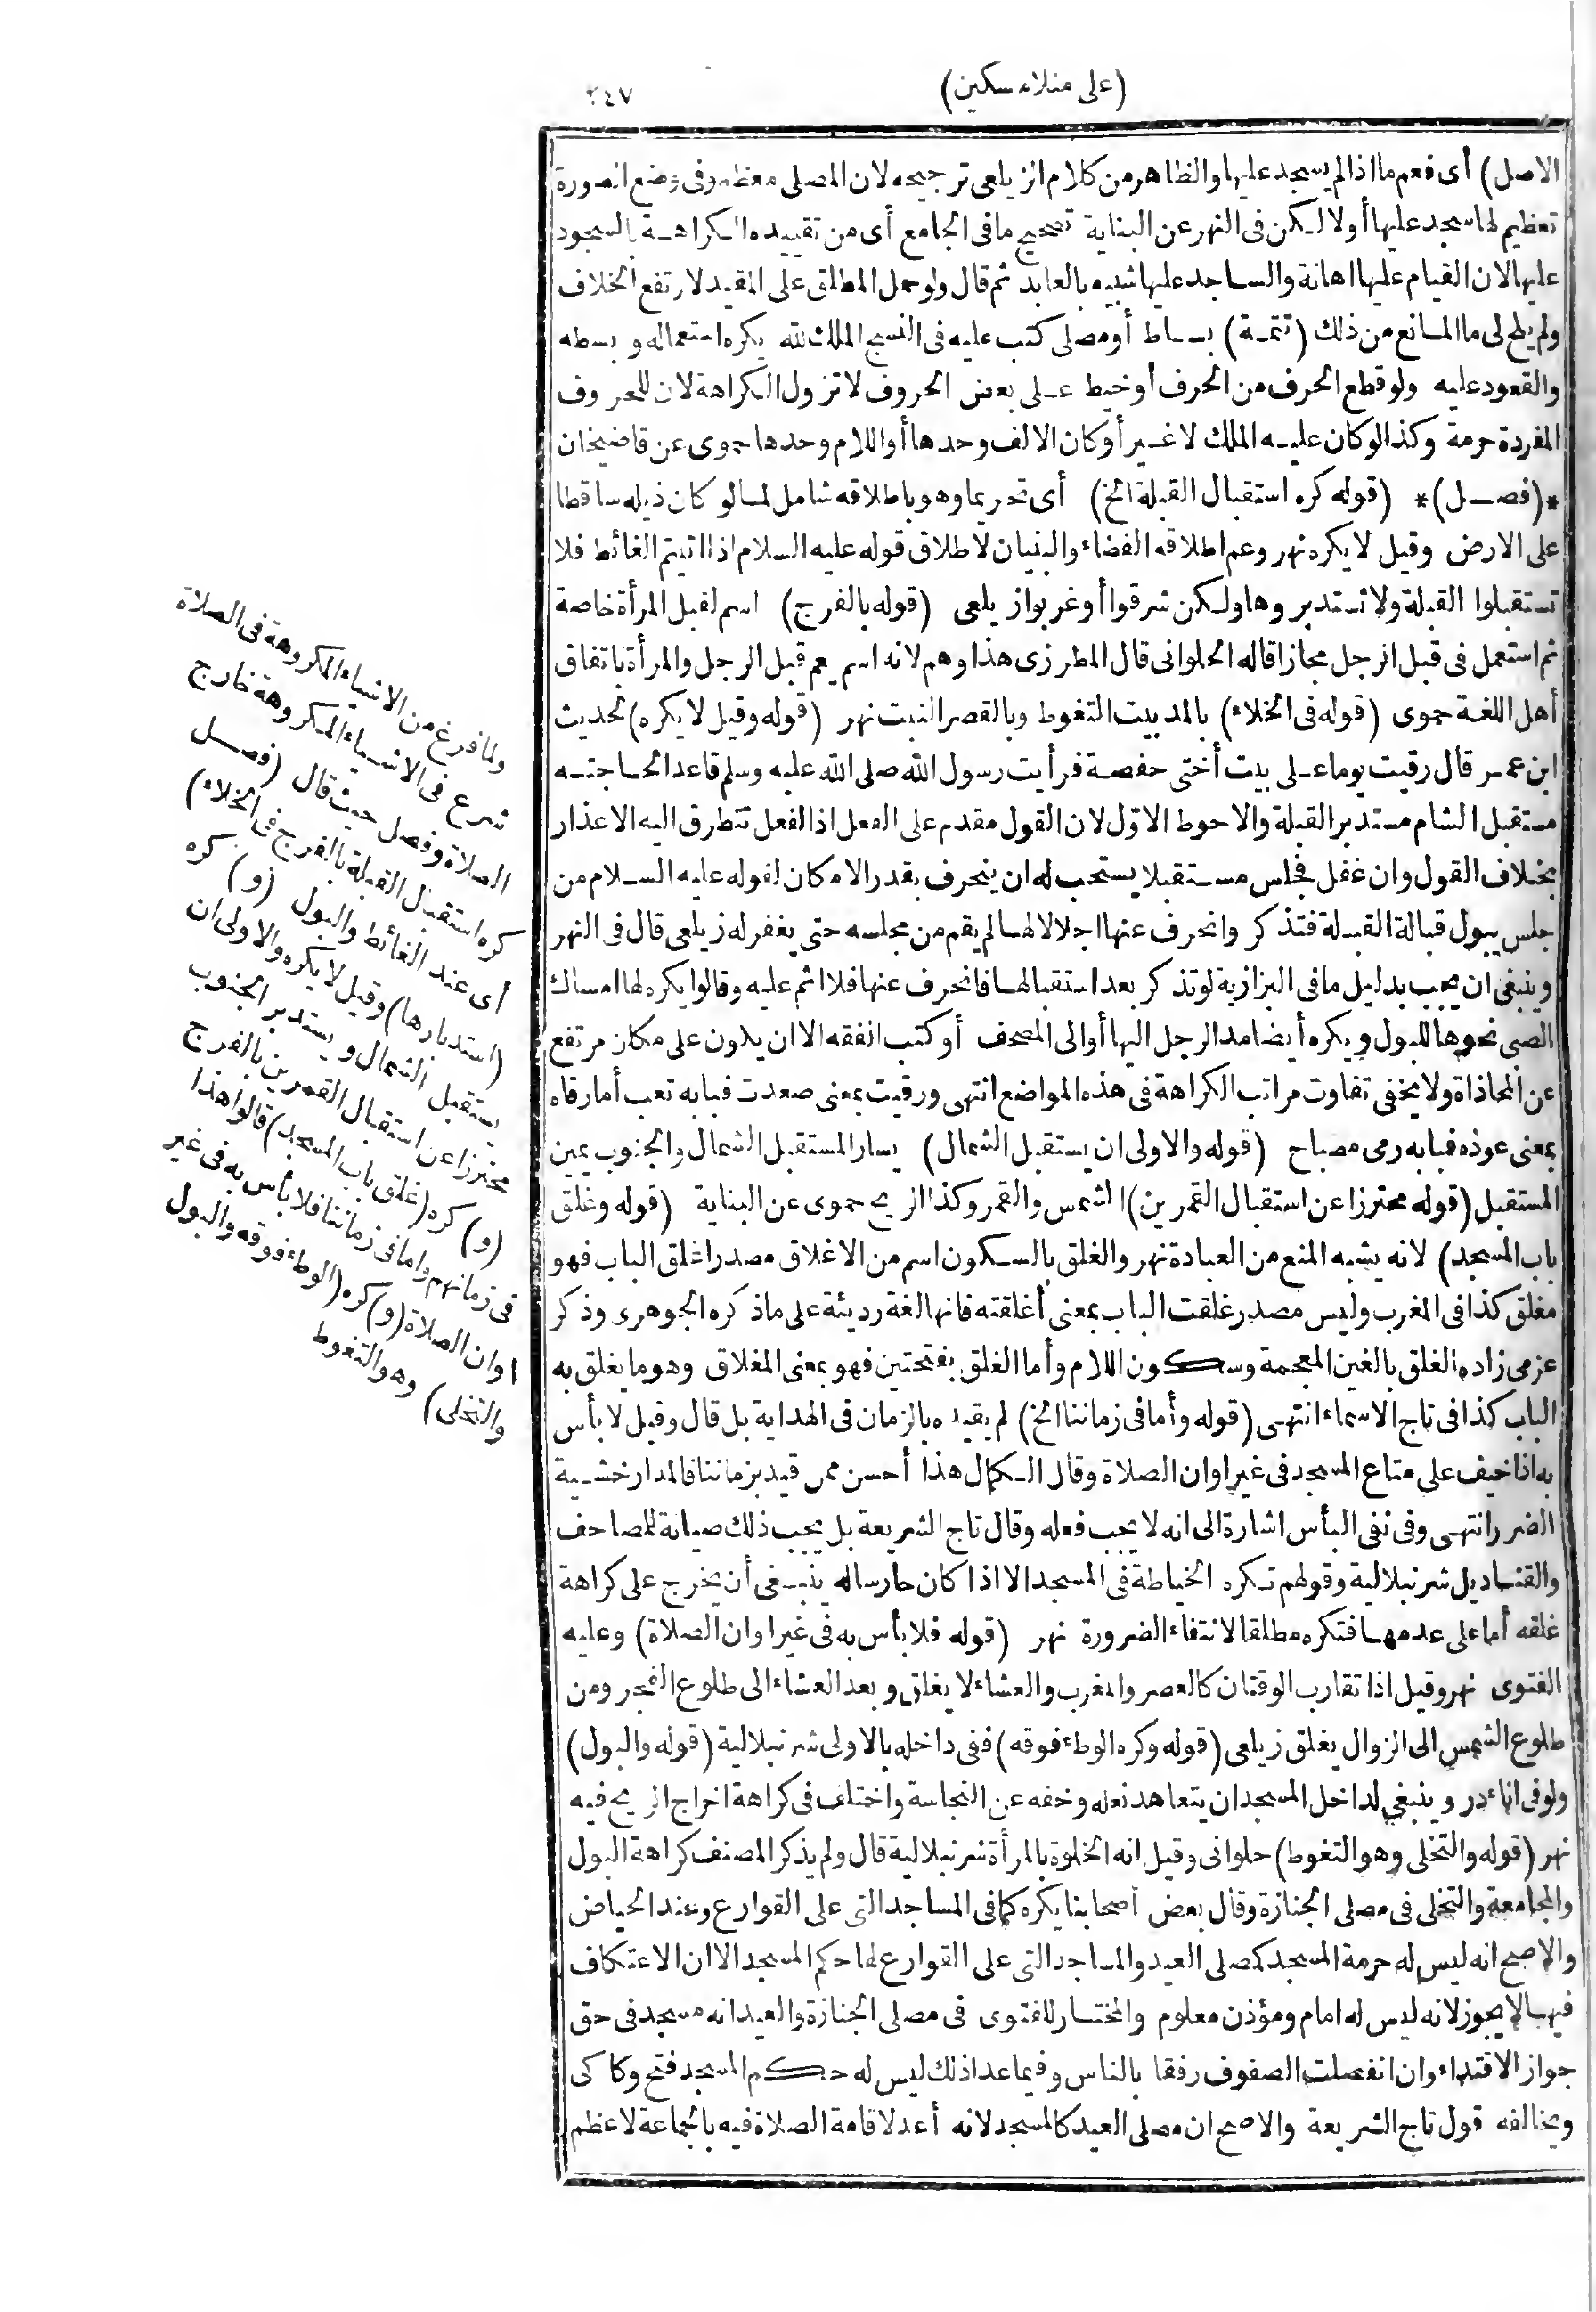 (على منلا مسكين)
٢٤٧
الاصل) أى فعم ما اذا لم يسجد عليها والظاهر من كلام الزيلعى ترجيحه لان المصلى معظم وفى وضع الصورة
تعظيم لها سجد عليها أولا لكن فى النهر عن البناية تصحيح ما فى الجامع أى من تقييده الكراهة بالسجود
عليها لان القيام عليها اهانة والساجد عليها شبيه بالعابد ثم قال ولو حمل المطلق على المقيد لارتفع الخلاف
ولم يلح لى ما المانع من ذلك (تتمة) بساط أو مصلى كتب عليه فى النسج الملك لله يكره استعماله وبسطه
والقعود عليه ولو قطع الحرف من الحرف أو خيط على بعض الحروف لا تزول الكراهة لان للحروف
المفردة حرمة وكذا لو كان عليه الملك لا غير أو كان الالف وحدها أو اللام وحدها حموى عن قاضيخان
*(فصل)* (قوله كره استقبال القبلة الخ) أى تحريما وهو باطلاقه شامل لما لو كان ذيله ساقطا
على الارض وقيل لا يكره نهر وعم اطلاقه الفضاء والبنيان لاطلاق قوله عليه السلام اذا اتيتم الغائط فلا
تستقبلوا القبلة ولا تستدبروها ولكن شرقوا أو غربوا زيلعى (قوله بالفرج) اسم لقبل المرأة خاصة
ثم استعمل فى قبل الرجل مجازا قاله الحلوانى قال المطرزى هذا وهم لانه اسم يعم قبل الرجل والمرأة باتفاق
أهل اللغة حموى (قوله فى الخلاء) بالمد بيت التغوط وبالقصر النبت نهر (قوله وقيل لا يكره) لحديث
ابن عمر قال رقيت يوما على بيت أختى حفصة فرأيت رسول الله صلى الله عليه وسلم قاعدا لحاجته
مستقبل الشام مستدبر القبلة والاحوط الاوّل لان القول مقدم على الفعل اذ الفعل تتطرق اليه الاعذار
بخلاف القول وان غفل فجلس مستقبلا يستحب له ان ينحرف بقدر الامكان لقوله عليه السلام من
جلس يبول قبالة القبلة فتذكر وانحرف عنها اجلالا لها لم يقم من مجلسه حتى يغفر له زيلعى قال فى النهر
وينبغى ان يجب بدليل ما فى البزازية لو تذكر بعد استقبالها فانحرف عنها فلا اثم عليه وقالوا يكره لها امساك
الصبى نحوها للبول ويكره أيضا مد الرجل اليها أو الى المصحف أو كتب الفقه الا ان يكون على مكان مرتفع
عن المحاذاة ولا يخفى تفاوت مراتب الكراهة فى هذه المواضع انتهى ورقيت بمعنى صعدت فبابه تعب أما رقاه
بمعنى عوذه فبابه رمى مصباح (قوله والاولى ان يستقبل الشمال) يسار المستقبل الشمال والجنوب يمين
المستقبل (قوله محترزا عن استقبال القمرين) الشمس والقمر وكذا الريح حموى عن البناية (قوله وغلق
باب المسجد) لانه يشبه المنع من العبادة نهر والغلق بالسكون اسم من الاغلاق مصدر اغلق الباب فهو
مغلق كذا فى المغرب وليس مصدر غلقت الباب بمعنى أغلقته فانها لغة رديئة على ما ذكره الجوهرى وذكر
عزمى زاده الغلق بالغين المعجمة وسكون اللام وأما الغلق بفتحتين فهو بمعنى المغلاق وهو ما يغلق به
الباب كذا فى تاج الاسماء انتهى (قوله وأما فى زماننا الخ) لم يقيده بالزمان فى الهداية بل قال وقيل لا بأس
به اذا خيف على متاع المسجد فى غير اوان الصلاة وقال الكمال هذا أحسن ممن قيد بزماننا فالمدار خشية
الضرر انتهى وفى نفى البأس اشارة الى انه لا يجب فعله وقال تاج الشريعة بل يجب ذلك صيانة للمصاحف
والقناديل شرنبلالية وقولهم تكره الخياطة فى المسجد الا اذا كان حارسا له ينبغى أن يخرج على كراهة
غلقه أما على عدمها فتكره مطلقا لانتفاء الضرورة نهر (قوله فلا بأس به فى غير اوان الصلاة) وعليه
الفتوى نهر وقيل اذا تقارب الوقتان كالعصر والمغرب والعشاء لا يغلق وبعد العشاء الى طلوع الفجر ومن
طلوع الشمس الى الزوال يغلق زيلعى (قوله وكره الوطء فوقه) ففى داخله بالاولى شرنبلالية (قوله والبول)
ولو فى اناء در وينبغى لداخل المسجد ان يتعاهد نعله وخفه عن النجاسة واختلف فى كراهة اخراج الريح فيه
نهر (قوله والتخلى وهو التغوط) حلوانى وقيل انه الخلوة بالمرأة شرنبلالية قال ولم يذكر المصنف كراهة البول
والمجامعة والتخلى فى مصلى الجنازة وقال بعض أصحابنا يكره كما فى المساجد التى على القوارع وعند الحياض
والاصح انه ليس له حرمة المسجد كمصلى العيد والمساجد التى على القوارع لها حكم المسجد الا ان الاعتكاف
فيها لا يجوز لانه ليس له امام ومؤذن معلوم والمختار للفتوى فى مصلى الجنازة والعيد انه مسجد فى حق
جواز الاقتداء وان انفصلت الصفوف رفقا بالناس وفيما عدا ذلك ليس له حكم المسجد فتح وكاكى
ويخالفه قول تاج الشريعة والاصح ان مصلى العيد كالمسجد لانه أعد لاقامة الصلاة فيه بالجماعة لاعظم
ولما فرغ من الاشياء المكروهة فى الصلاة
شرع فى الاشياء المكروهة خارج
الصلاة وفصل حيث قال (فصل
كره استقبال القبلة بالفرج فى الخلاء)
أى عند الغائط والبول (و) كره
(استدبارها) وقيل لا يكره والاولى ان
يستقبل الشمال ويستدبر الجنوب
محترزا عن استقبال القمرين بالفرج
(و) كره (غلق باب المسجد) قالوا هذا
فى زمانهم واما فى زماننا فلا بأس به فى غير
اوان الصلاة (و) كره (الوطء فوقه والبول
والتخلى) وهو التغوط